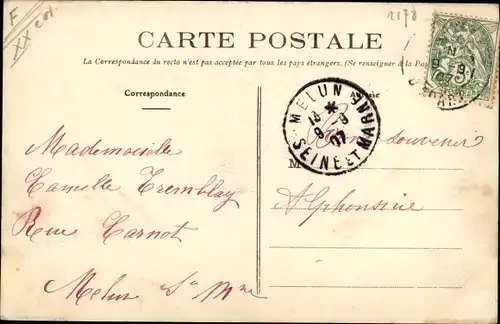 F
XX col.
2178
CARTE POSTALE
La Correspondance du recto n'est pas acceptée par tous les pays étrangers. (Se renseigner à la Poste
Correspondance
MELUN
13 *
9 -9
07
SEINE ET MARNE
souvenir
M
Mademoiselle
Camille Tremblay
Rue Carnot
Melun Sne Mne
Alphonsine